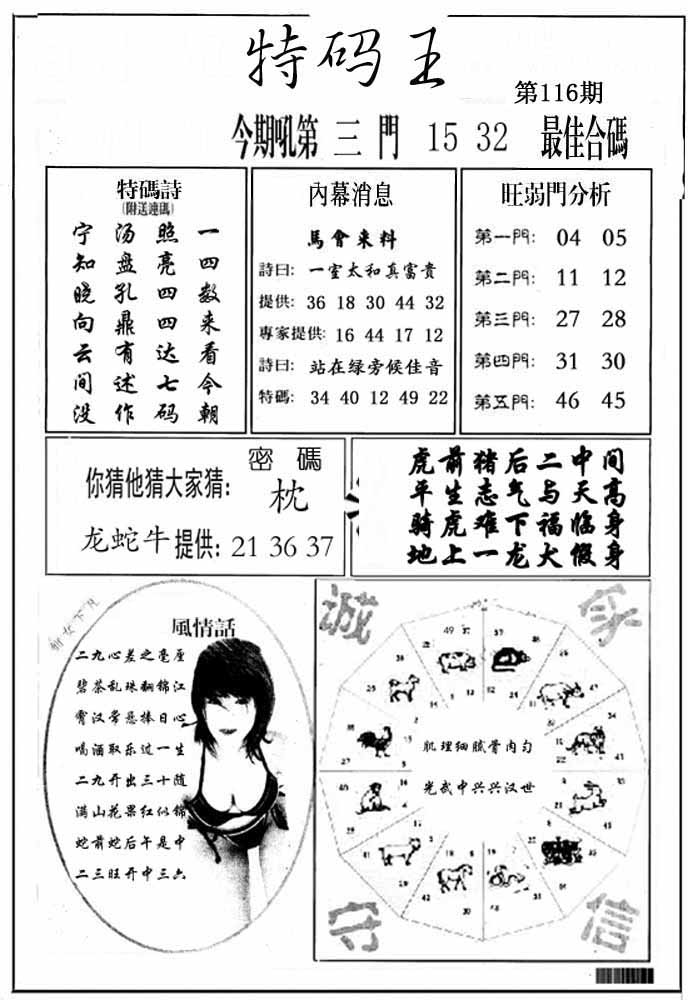 特码王
第116期
今期吼第 三 門 15 32 最佳合碼
特碼詩
(附送連碼)
宁 汤 照 一
知 盘 亮 四
晓 孔 四 数
向 鼎 四 来
云 有 达 看
间 述 七 今
没 作 码 朝
內幕消息
馬會来料
詩曰: 一室太和真富貴
提供: 36 18 30 44 32
專家提供: 16 44 17 12
詩曰: 站在绿旁候佳音
特碼: 34 40 12 49 22
旺弱門分析
第一門: 04 05
第二門: 11 12
第三門: 27 28
第四門: 31 30
第五門: 46 45
密碼
你猜他猜大家猜: 枕
龙蛇牛提供: 21 36 37
虎前猪后二中间
平生志气与天高
骑虎难下福临身
地上一龙大假身
女下凡
風情話
二九心差之毫厘
碧茶乱珠翻锦江
霄汉常悬捧日心
喝酒取乐过一生
二九开出三十随
满山花果红似锦
蛇前蛇后午是中
二三旺开中三六
诚 家
肌理细腻骨肉匀
光武中兴兴汉世
守 信